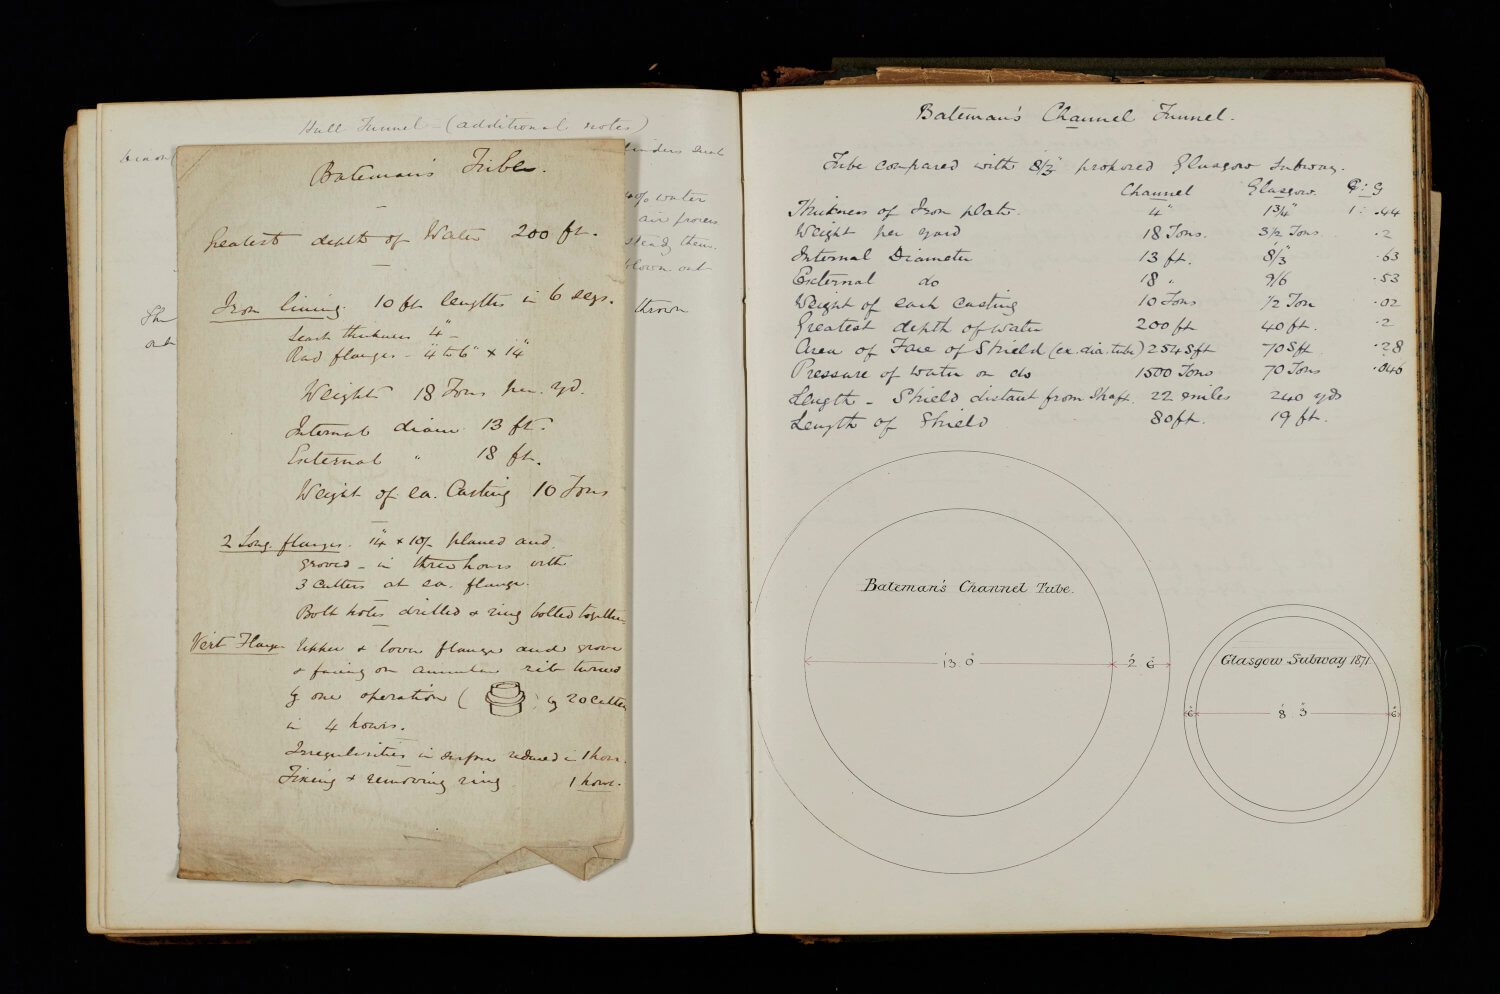 Hull Tunnel - (additional notes)
of water
air process
steady them.
blown out
thrown
Bateman's Tube.
Greatest depth of Water 200 ft.
Iron lining. 10 ft lengths in 6 segs.
Least thickness 4"
Rad flanges - 4" to 6" x 14"
Weight 18 Tons per. yd.
Internal diam. 13 ft.
External " 18 ft.
Weight of ea. Casting 10 Tons
2 Long flanges. 14" x 10ft planed and
groved - in three hours with
3 cutters at ea. flange.
Bolt holes drilled & ring bolted together
Vert Flange Upper & lower flange and grove
& facing on annular rib turned
by one operation ( ) by 20 cutters
in 4 hours.
Irregularities in surface reduced in 1 hour.
Fixing & removing ring 1 hour.
Bateman's Channel Tunnel.
Tube compared with 8/3" proposed Glasgow Subway.
Channel Glasgow C : G
Thickness of Iron plate. 4" 1 3/4" 1 : .44
Weight per yard 18 Tons. 3 1/2 Tons .2
Internal Diameter 13 ft. 8'/3" .63
External do 18 " 9/6 .53
Weight of each casting 10 Tons 1/2 Ton .02
Greatest depth of water 200 ft 40 ft. .2
Area of Face of Shield (ex. dia. tube) 254 Sft 70 Sft .28
Pressure of water on do 1500 Tons 70 Tons .046
Length - Shield distant from Shaft. 22 miles 240 yds
Length of Shield 80 ft. 19 ft.
Bateman's Channel Tube.
13. 0
2. 6
Glasgow Subway 1871
6 8. 3 6